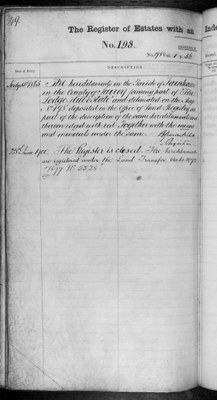 The Register of Estates with an
No. 198.
DESCRIPTION.
1868 The hereditaments in the Parish of Farnham
in the County of Surrey forming part of The
Lodge Hill Estate and delineated on the Map
No 198 deposited in the Office of Land Registry as
part of the description of the same hereditaments and
thereon edged with red Together with the mines
and minerals under the same.
June 1900. The Register is closed. The hereditaments
as registered under the Land Transfer Acts 1875
1897 No